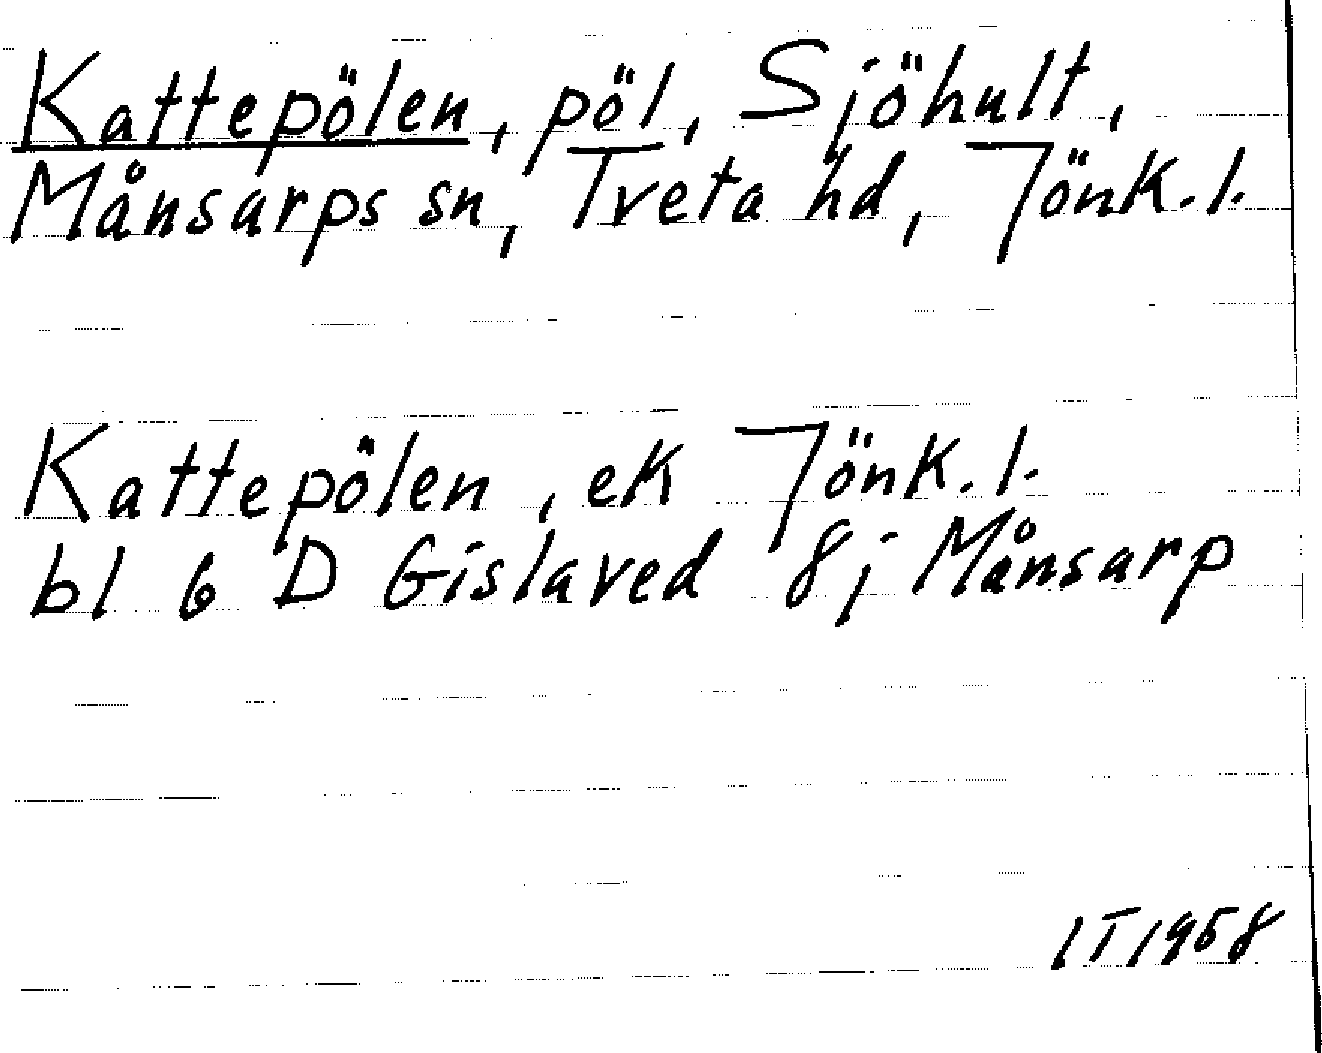 Kattepölen, pöl, Sjöhult,
Månsarps sn, Tveta hd, Jönk. l.
Kattepölen, ek Jönk. l.
bl 6 D Gislaved 8j Månsarp
IT 1958